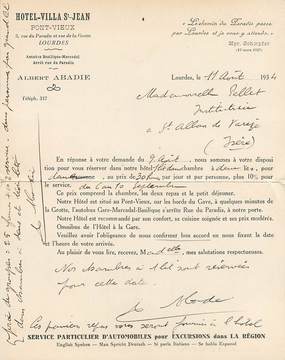 HOTEL-VILLA St-JEAN
PONT-VIEUX
2, rue du Paradis et rue de la Grotte
LOURDES
Autobus Basilique-Marcadal
Arrêt rue du Paradis
ALBERT ABADIE
Téléph. 317
« Le chemin du Paradis passe
par Lourdes et je vous y attends. »
Mgr. Schœpfer
Lourdes, le 11 Août 1934
Mademoiselle Pellet
Institutrice
à St Alban de Varèze
(Isère)
En réponse à votre demande du 9 Août, nous sommes à votre disposi-
tion pour vous réserver dans notre hôtel
au prix de 30 frs par jour et par personne, plus 10% pour
le service.
Ce prix comprend la chambre, les deux repas et le petit déjeuner.
Notre Hôtel est situé au Pont-Vieux, sur bords du Gave, à quelques minutes de
la Grotte, l'autobus Gare-Marcadal-Basilique s'arrête Rue du Paradis, à notre porte.
Notre Hôtel est recommandé par son confort, sa cuisine soignée et ses prix modérés.
Omnibus de l'Hôtel à la Gare.
Veuillez avoir l'obligeance de nous confirmer bon accord en nous fixant la date
et l'heure de votre arrivée.
Au plaisir de vous lire, recevez, Mademoiselle, mes salutations respectueuses.
Nos chambres à 1 lit sont réservées
pour cette date.
Les paniers repas vous seront fournis à l'hôtel
SERVICE PARTICULIER D'AUTOMOBILES pour EXCURSIONS dans LA RÉGION
English Spoken — Man Spricht Deutsch — Si parla Italiano — Se habla Espanol